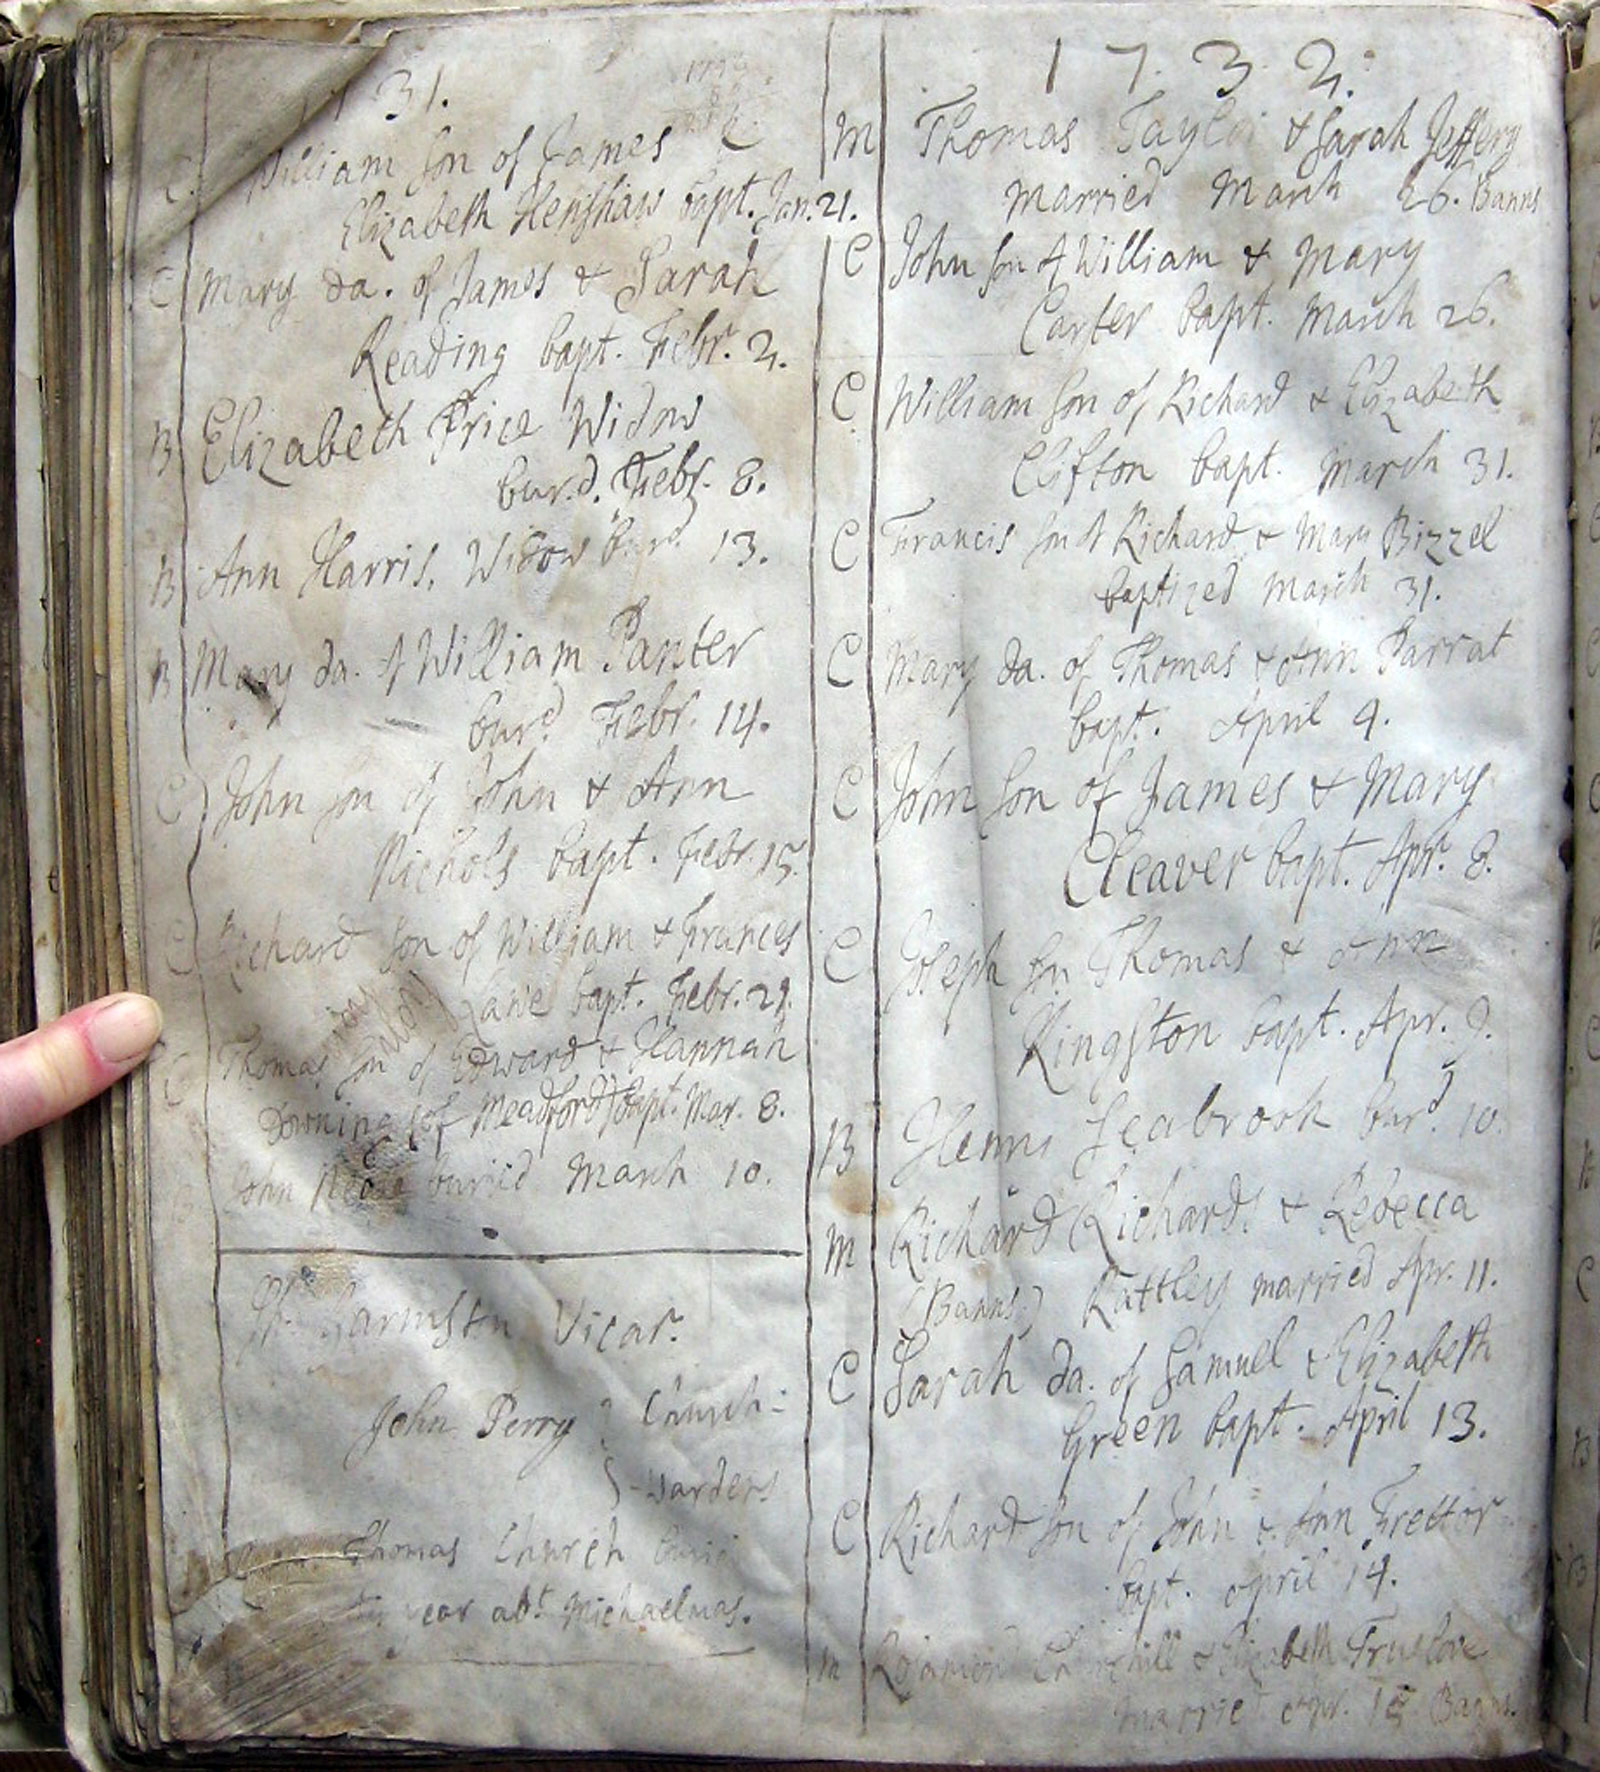 1731.
C William Son of James &
Elizabeth Henshaw bapt. Jan. 21.
C Mary da. of James & Sarah
Reading bapt. Febr. 2.
B Elizabeth Price Widow
bur.d. Febr. 8.
B Ann Harris, Widow bur.d 13.
B Mary da. of William Panter
bur.d Febr. 14.
C John son of John & Ann
Nichols bapt. Febr. 15.
C Richard Son of William & Frances
Lane bapt. Febr. 29.
C Thomas son of Edward & Hannah
Downing (of Meadford) bapt. Mar. 8.
B John buried March 10.
Vicar.
John Perry } Church-
-wardens
Thomas Church
year abt Michaelmas.
1732.
M Thomas Taylor & Sarah Jeffery
married March 26. Banns
C John Son of William & Mary
Carter bapt. March 26.
C William Son of Richard & Elizabeth
Clifton bapt. March 31.
C Francis Son of Richard & Mary Bizzel
baptized March 31.
C Mary da. of Thomas & Ann Parrat
bapt. April 4.
C John Son of James & Mary
Cleaver bapt. Apr. 8.
C Joseph Son Thomas & Ann
Kingston bapt. Apr. 9.
B Henry Seabrook bur.d 10.
M Richard Richards & Rebecca
(Banns) Rattley married Apr. 11.
C Sarah da. of Samuel & Elizabeth
Green bapt. April 13.
C Richard Son of John & Ann Frettor
bapt. April 14.
M & Elizabeth Truelove
married Apr. 15 Banns.